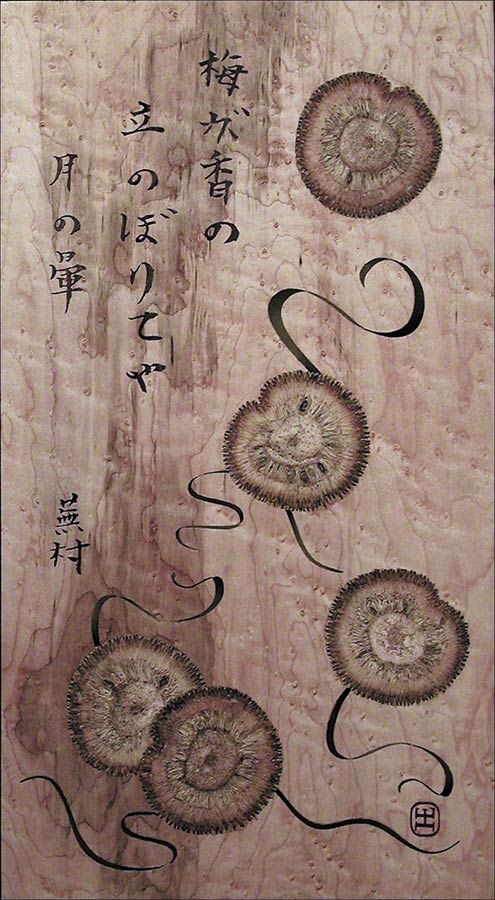 梅が香の
立のぼりてや
月の暈
蕪村